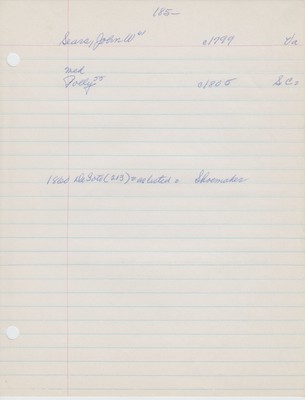 185-
Sears, John W c1799 Va
and
Polly c1805 S.C.
1860 DeSoto (213) = as listed = Shoemaker